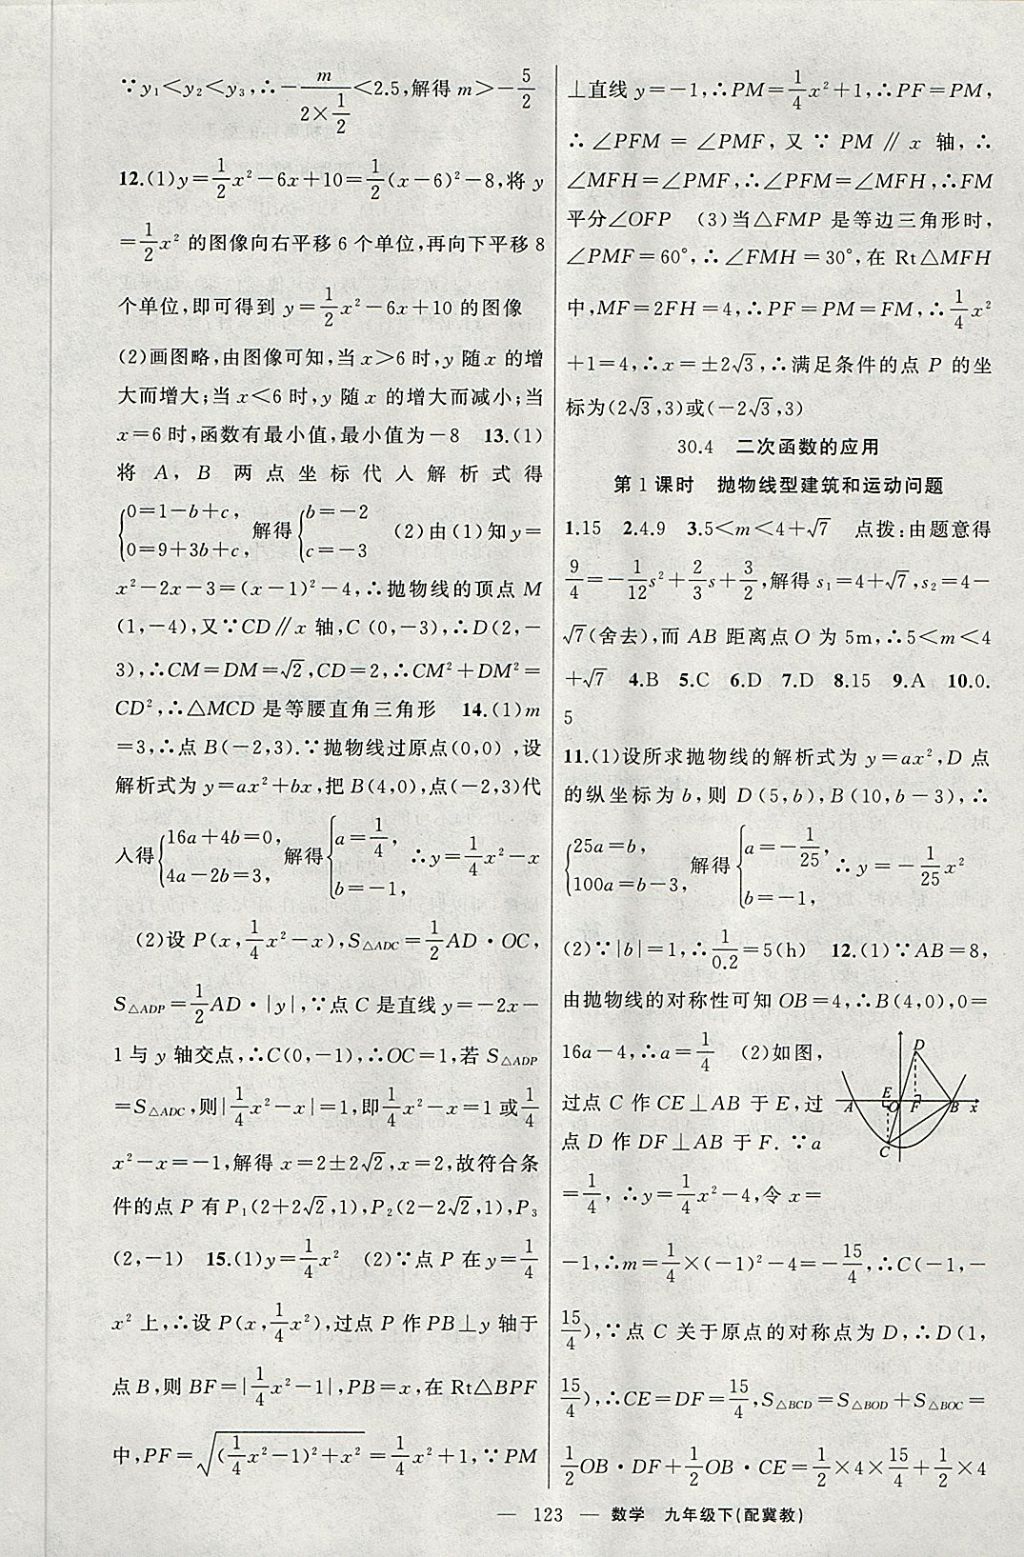 ∵y₁＜y₂＜y₃,∴−m/(2×1/2)＜2.5,解得 m＞−5/2
12.(1)y=1/2x²−6x+10=1/2(x−6)²−8,将 y
=1/2x² 的图像向右平移 6 个单位,再向下平移 8
个单位,即可得到 y=1/2x²−6x+10 的图像
(2)画图略,由图像可知,当 x＞6 时,y 随 x 的增
大而增大;当 x＜6 时,y 随 x 的增大而减小;当
x=6 时,函数有最小值,最小值为−8 13.(1)
将 A, B 两点坐标代入解析式得
{0=1−b+c, 0=9+3b+c, 解得{b=−2 c=−3 (2)由(1)知 y=
x²−2x−3=(x−1)²−4,∴抛物线的顶点 M
(1,−4),又∵CD∥x 轴,C(0,−3),∴D(2,−
3),∴CM=DM=√2,CD=2,∴CM²+DM²=
CD²,∴△MCD 是等腰直角三角形 14.(1)m
=3,∴点 B(−2,3).∵抛物线过原点(0,0),设
解析式为 y=ax²+bx,把 B(4,0),点(−2,3)代
入得{16a+4b=0, 4a−2b=3, 解得{a=1/4, b=−1, ∴y=1/4x²−x
(2)设 P(x,1/4x²−x),S△ADC=1/2AD·OC,
S△ADP=1/2AD·|y|,∵点 C 是直线 y=−2x−
1 与 y 轴交点,∴C(0,−1),∴OC=1,若 S△ADP
=S△ADC,则|1/4x²−x|=1,即1/4x²−x=1 或1/4
x²−x=−1,解得 x=2±2√2,x=2,故符合条
件的点 P 有 P₁(2+2√2,1),P₂(2−2√2,1),P₃
(2,−1) 15.(1)y=1/4x² (2)∵点 P 在 y=1/4
x² 上,∴设 P(x,1/4x²),过点 P 作 PB⊥y 轴于
点 B,则 BF=|1/4x²−1|,PB=x,在 Rt△BPF
中,PF=√((1/4x²−1)²+x²)=1/4x²+1,∵PM
⊥直线 y=−1,∴PM=1/4x²+1,∴PF=PM,
∴∠PFM=∠PMF,又∵PM∥x 轴,∴
∠MFH=∠PMF,∴∠PFM=∠MFH,∴FM
平分∠OFP (3)当△FMP 是等边三角形时,
∠PMF=60°,∴∠FMH=30°,在 Rt△MFH
中,MF=2FH=4,∴PF=PM=FM,∴1/4x²
+1=4,∴x=±2√3,∴满足条件的点 P 的坐
标为(2√3,3)或(−2√3,3)
30.4 二次函数的应用
第 1 课时 抛物线型建筑和运动问题
1.15 2.4.9 3.5＜m＜4+√7 点拨:由题意得
9/4=−1/12s²+2/3s+3/2,解得 s₁=4+√7,s₂=4−
√7(舍去),而 AB 距离点 O 为 5m,∴5＜m＜4
+√7 4.B 5.C 6.D 7.D 8.15 9.A 10.0.
5
11.(1)设所求抛物线的解析式为 y=ax²,D 点
的纵坐标为 b,则 D(5,b),B(10,b−3),∴
{25a=b, 100a=b−3, 解得{a=−1/25, b=−1, ∴y=−1/25x²
(2)∵|b|=1,∴1/0.2=5(h) 12.(1)∵AB=8,
由抛物线的对称性可知 OB=4,∴B(4,0),0=
16a−4,∴a=1/4 (2)如图,
过点 C 作 CE⊥AB 于 E,过
点 D 作 DF⊥AB 于 F.∵a
=1/4,∴y=1/4x²−4,令 x=
D
E
A O F B x
C
−1,∴m=1/4×(−1)²−4=−15/4,∴C(−1,−
15/4),∵点 C 关于原点的对称点为 D,∴D(1,
15/4),∴CE=DF=15/4,S△BCD=S△BOD+S△BOC=
1/2OB·DF+1/2OB·CE=1/2×4×15/4+1/2×4
— 123 — 数学 九年级下(配冀教)